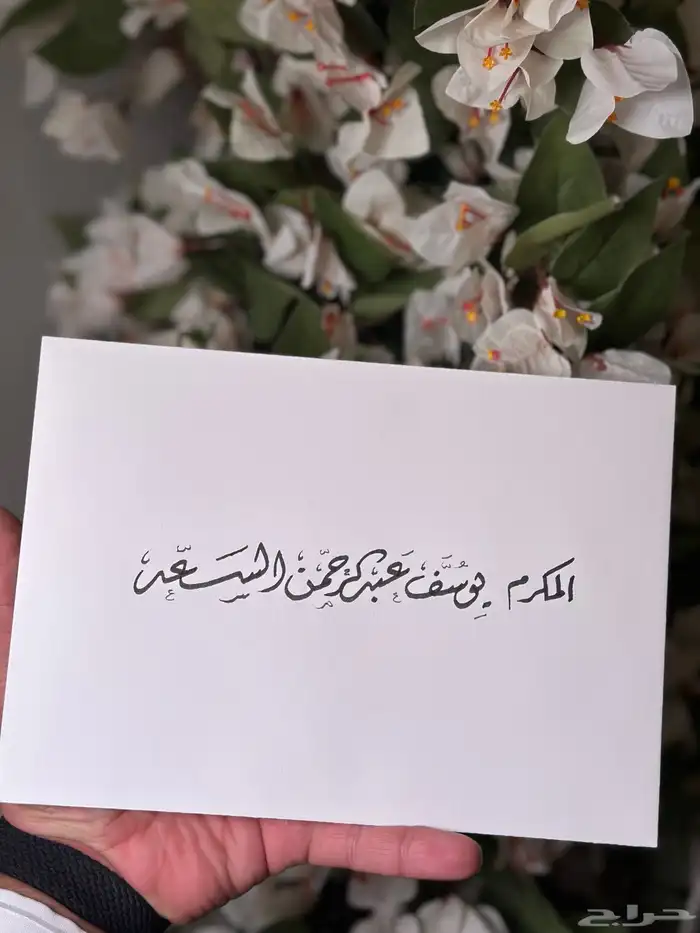 المكرم يوسف عبدالرحمن السعد
حراج